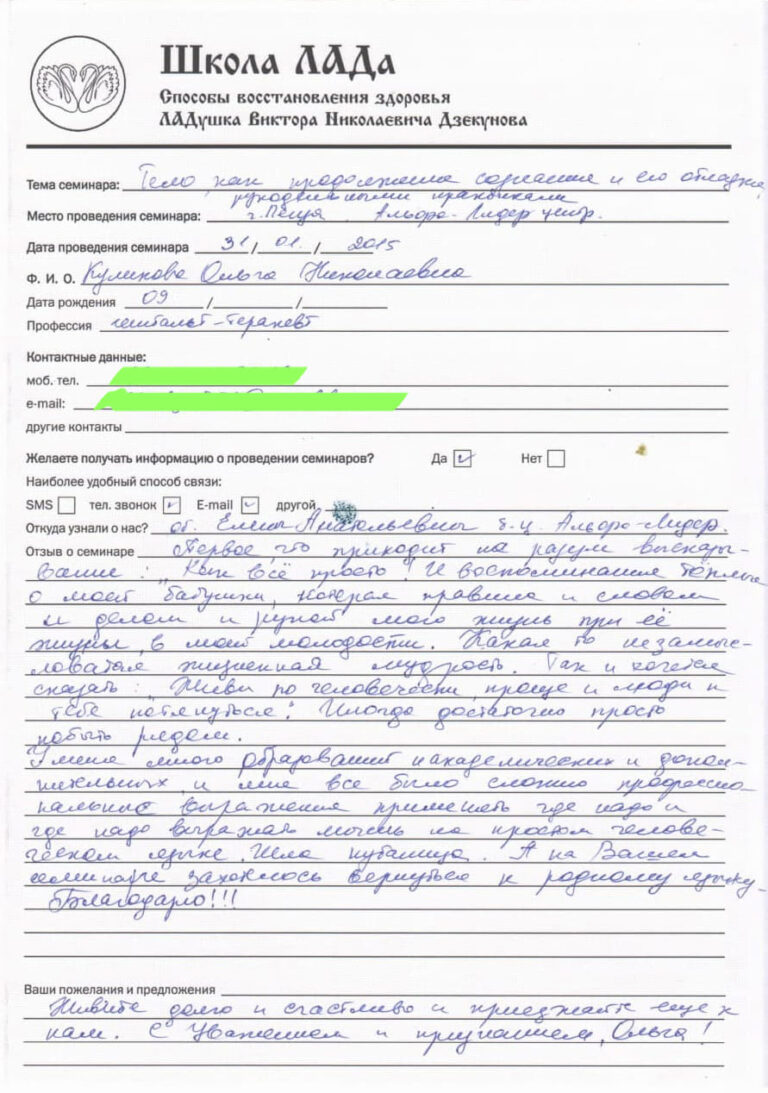 Школа ЛАДа
Способы восстановления здоровья
ЛАДушка Виктора Николаевича Дзекунова
Тема семинара: Тело, как продолжение сознания и его отладка
рукодвижными практиками
Место проведения семинара: г. Альфа-Лидер центр.
Дата проведения семинара 31/01./2015
Ф. И. О. Куликова Ольга Николаевна
Дата рождения 09 / /
Профессия гештальт-терапевт
Контактные данные:
моб. тел.
e-mail:
другие контакты
Желаете получать информацию о проведении семинаров? Да Нет
Наиболее удобный способ связи:
SMS тел. звонок E-mail другой
Откуда узнали о нас? от Елены Анатольевны б-ц. Альфа-Лидер.
Отзыв о семинаре Первое, что приходит на разум высказы-
вание: "Как всё просто"! И воспоминания тёплые
о моей бабушки, которая правила и словом
и делом и рукой мою жизнь при её
жизни, в моей молодости. Какая то незамыс-
ловатая жизненная мудрость. Так и хочется
сказать: "Живи по человечески, проще и люди к
тебе потянуться". Иногда достаточно просто
побыть рядом.
У меня много образований и академических и допол-
нительных и мне все было сложно профессио-
нальные выражения применять где надо и
где надо выражать мысль на простом челове-
ческом языке. Шла путаница. А на Вашем
семинаре захотелось вернуться к родному языку.
Благодарю!!!
Ваши пожелания и предложения
Живите долго и счастливо и приезжайте еще к
нам. С Уважением и признанием, Ольга!